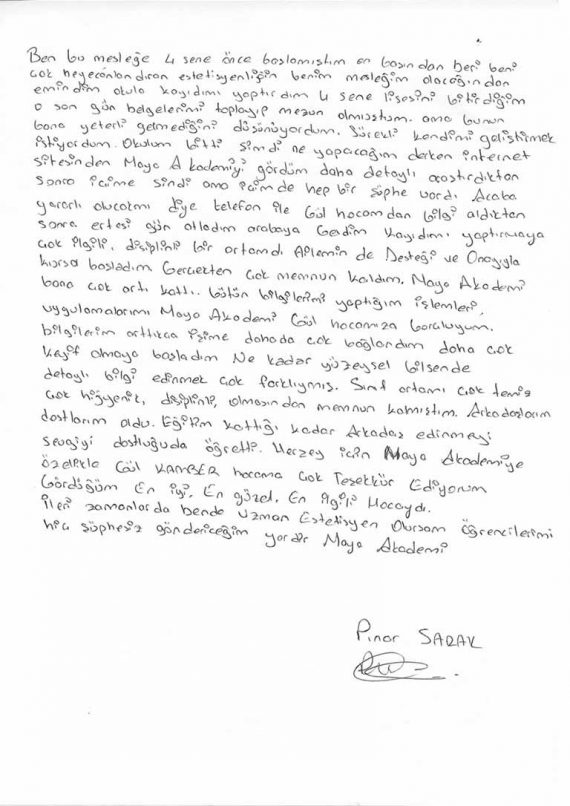 Ben bu mesleğe 4 sene önce başlamıştım en başından beri beni
çok heyecanlandıran estetisyenliğin benim mesleğim olacağından
emindim okula kayıdımı yaptırdım 4 sene lisesini bitirdiğim
o son gün belgelerimi toplayıp mezun olmuştum. ama bunun
bana yeterli gelmediğini düşünüyordum. Sürekli kendimi geliştirmek
istiyordum. Okulum bitti şimdi ne yapacağım derken internet
sitesinden Maya Akademiyi gördüm daha detaylı araştırdıktan
sonra içime sindi ama içimde hep bir şüphe vardı Acaba
yararlı olucakmı diye telefon ile Gül hocamdan bilgi aldıktan
sonra ertesi gün atladım arabaya Geldim Kayıdımı yaptırmaya
çok ilgili, disiplinli bir ortamdı Ailemin de Desteği ve Onayıyla
kursa başladım Gerçekten çok memnun kaldım. Maya Akademi
bana çok artı kattı.. bütün bilgilerimi yaptığım işlemleri,
uygulamalarımı Maya Akademi Gül hocamıza borçluyum.
bilgilerim arttıkça işime dahada çok bağlandım daha çok
keyif almaya başladım Ne kadar yüzeysel bilsende
detaylı bilgi edinmek çok farklıymış. Sınıf ortamı çok temiz
çok hijyenik, disiplinli, olmasından memnun kalmıştım. Arkadaşlarım
dostlarım oldu. Eğitim kattığı kadar Arkadaş edinmeyi
sevgiyi dostluğuda öğretti. Herzey için Maya Akademiye
özelikle Gül KAMBER hocama çok Teşekkür Ediyorum
Gördüğüm En iyi, En güzel, En ilgili Hocaydı.
ileri zamanlarda bende Uzman Estetisyen Olursam öğrencilerimi
hiç şüphesiz göndericeğim yerdir Maya Akademi
Pınar SARAK